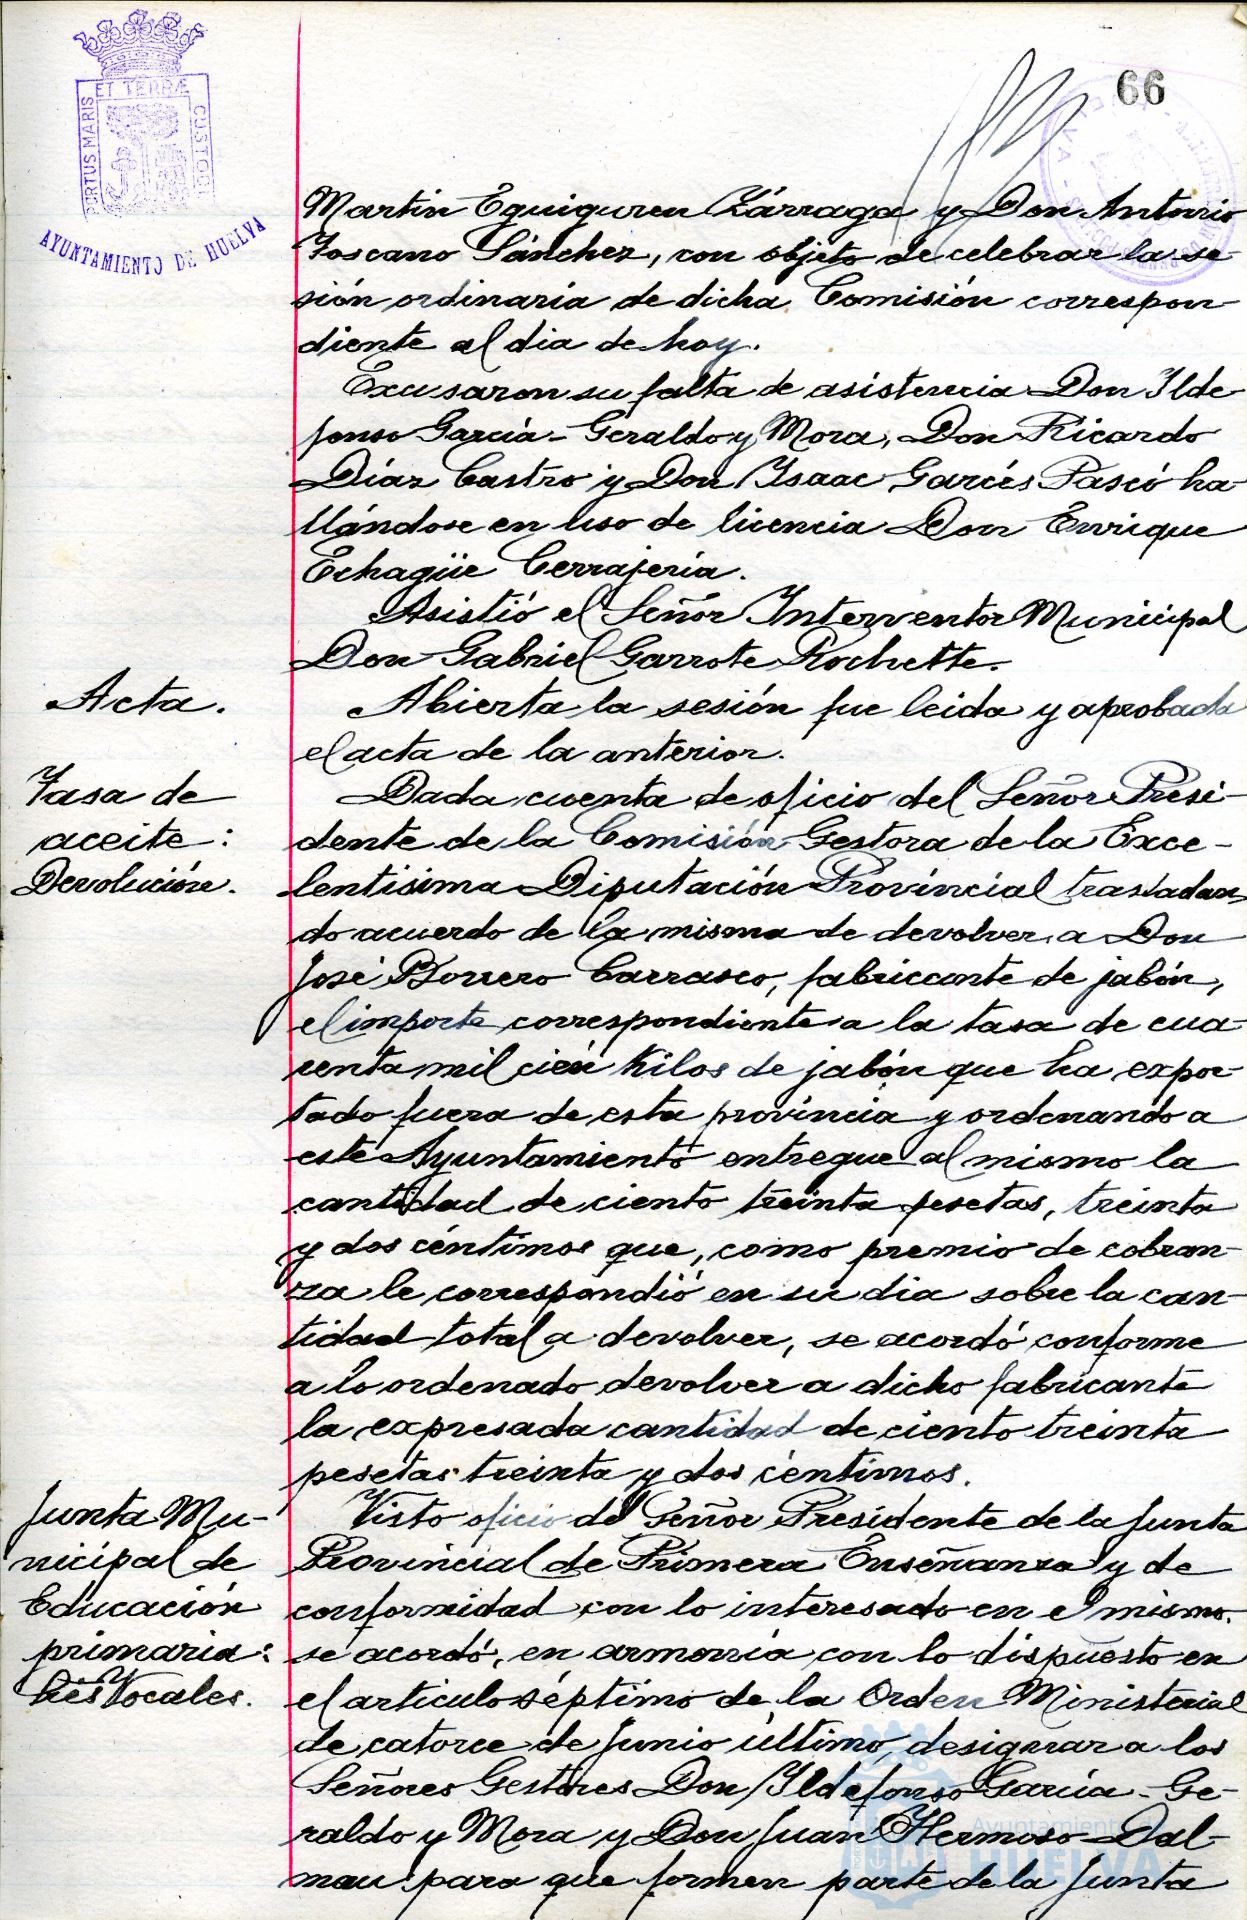 PORTUS MARIS ET TERRÆ CUSTODI
AYUNTAMIENTO DE HUELVA
66
Martín Eguiguren Zárraga y Don Antonio
Toscano Sánchez, con objeto de celebrar la se-
sión ordinaria de dicha Comisión correspon-
diente al dia de hoy.
Excusaron su falta de asistencia Don Ilde
fonso García-Geraldo y Mora, Don Ricardo
Díaz Castro y Don Isaac Garcés Pascó ha-
llándose en uso de licencia Don Enrique
Echagüe Cerrajería.
Asistió el Señor Interventor Municipal
Don Gabriel Garrote Rochette.
Acta.
Abierta la sesión fue leida y aprobada
el acta de la anterior.
Tasa de
aceite:
Devolución.
Dada cuenta de oficio del Señor Presi-
dente de la Comisión Gestora de la Exce-
lentísima Diputación Provincial trasladan-
do acuerdo de la misma de devolver a Don
José Borrero Carrasco, fabricante de jabón,
el importe correspondiente a la tasa de cua-
renta mil cien Kilos de jabón que ha expor-
tado fuera de esta provincia y ordenando a
este Ayuntamiento entregue al mismo la
cantidad de ciento treinta pesetas, treinta
y dos céntimos que, como premio de cobran-
za le correspondió en su dia sobre la can-
tidad total a devolver, se acordó conforme
a lo ordenado devolver a dicho fabricante
la expresada cantidad de ciento treinta
pesetas treinta y dos céntimos.
Junta Mu-
nicipal de
Educación
primaria:
Vocales.
Visto oficio del Señor Presidente de la Junta
Provincial de Primera Enseñanza y de
conformidad con lo interesado en el mismo.
se acordó, en armonía con lo dispuesto en
el artículo séptimo de la Orden Ministerial
de catorce de Junio último, designar a los
Señores Gestores Don Ildefonso García-Ge-
raldo y Mora y Don Juan Hermoso Dal-
mau para que formen parte de la Junta
Ayuntamiento
HUELVA